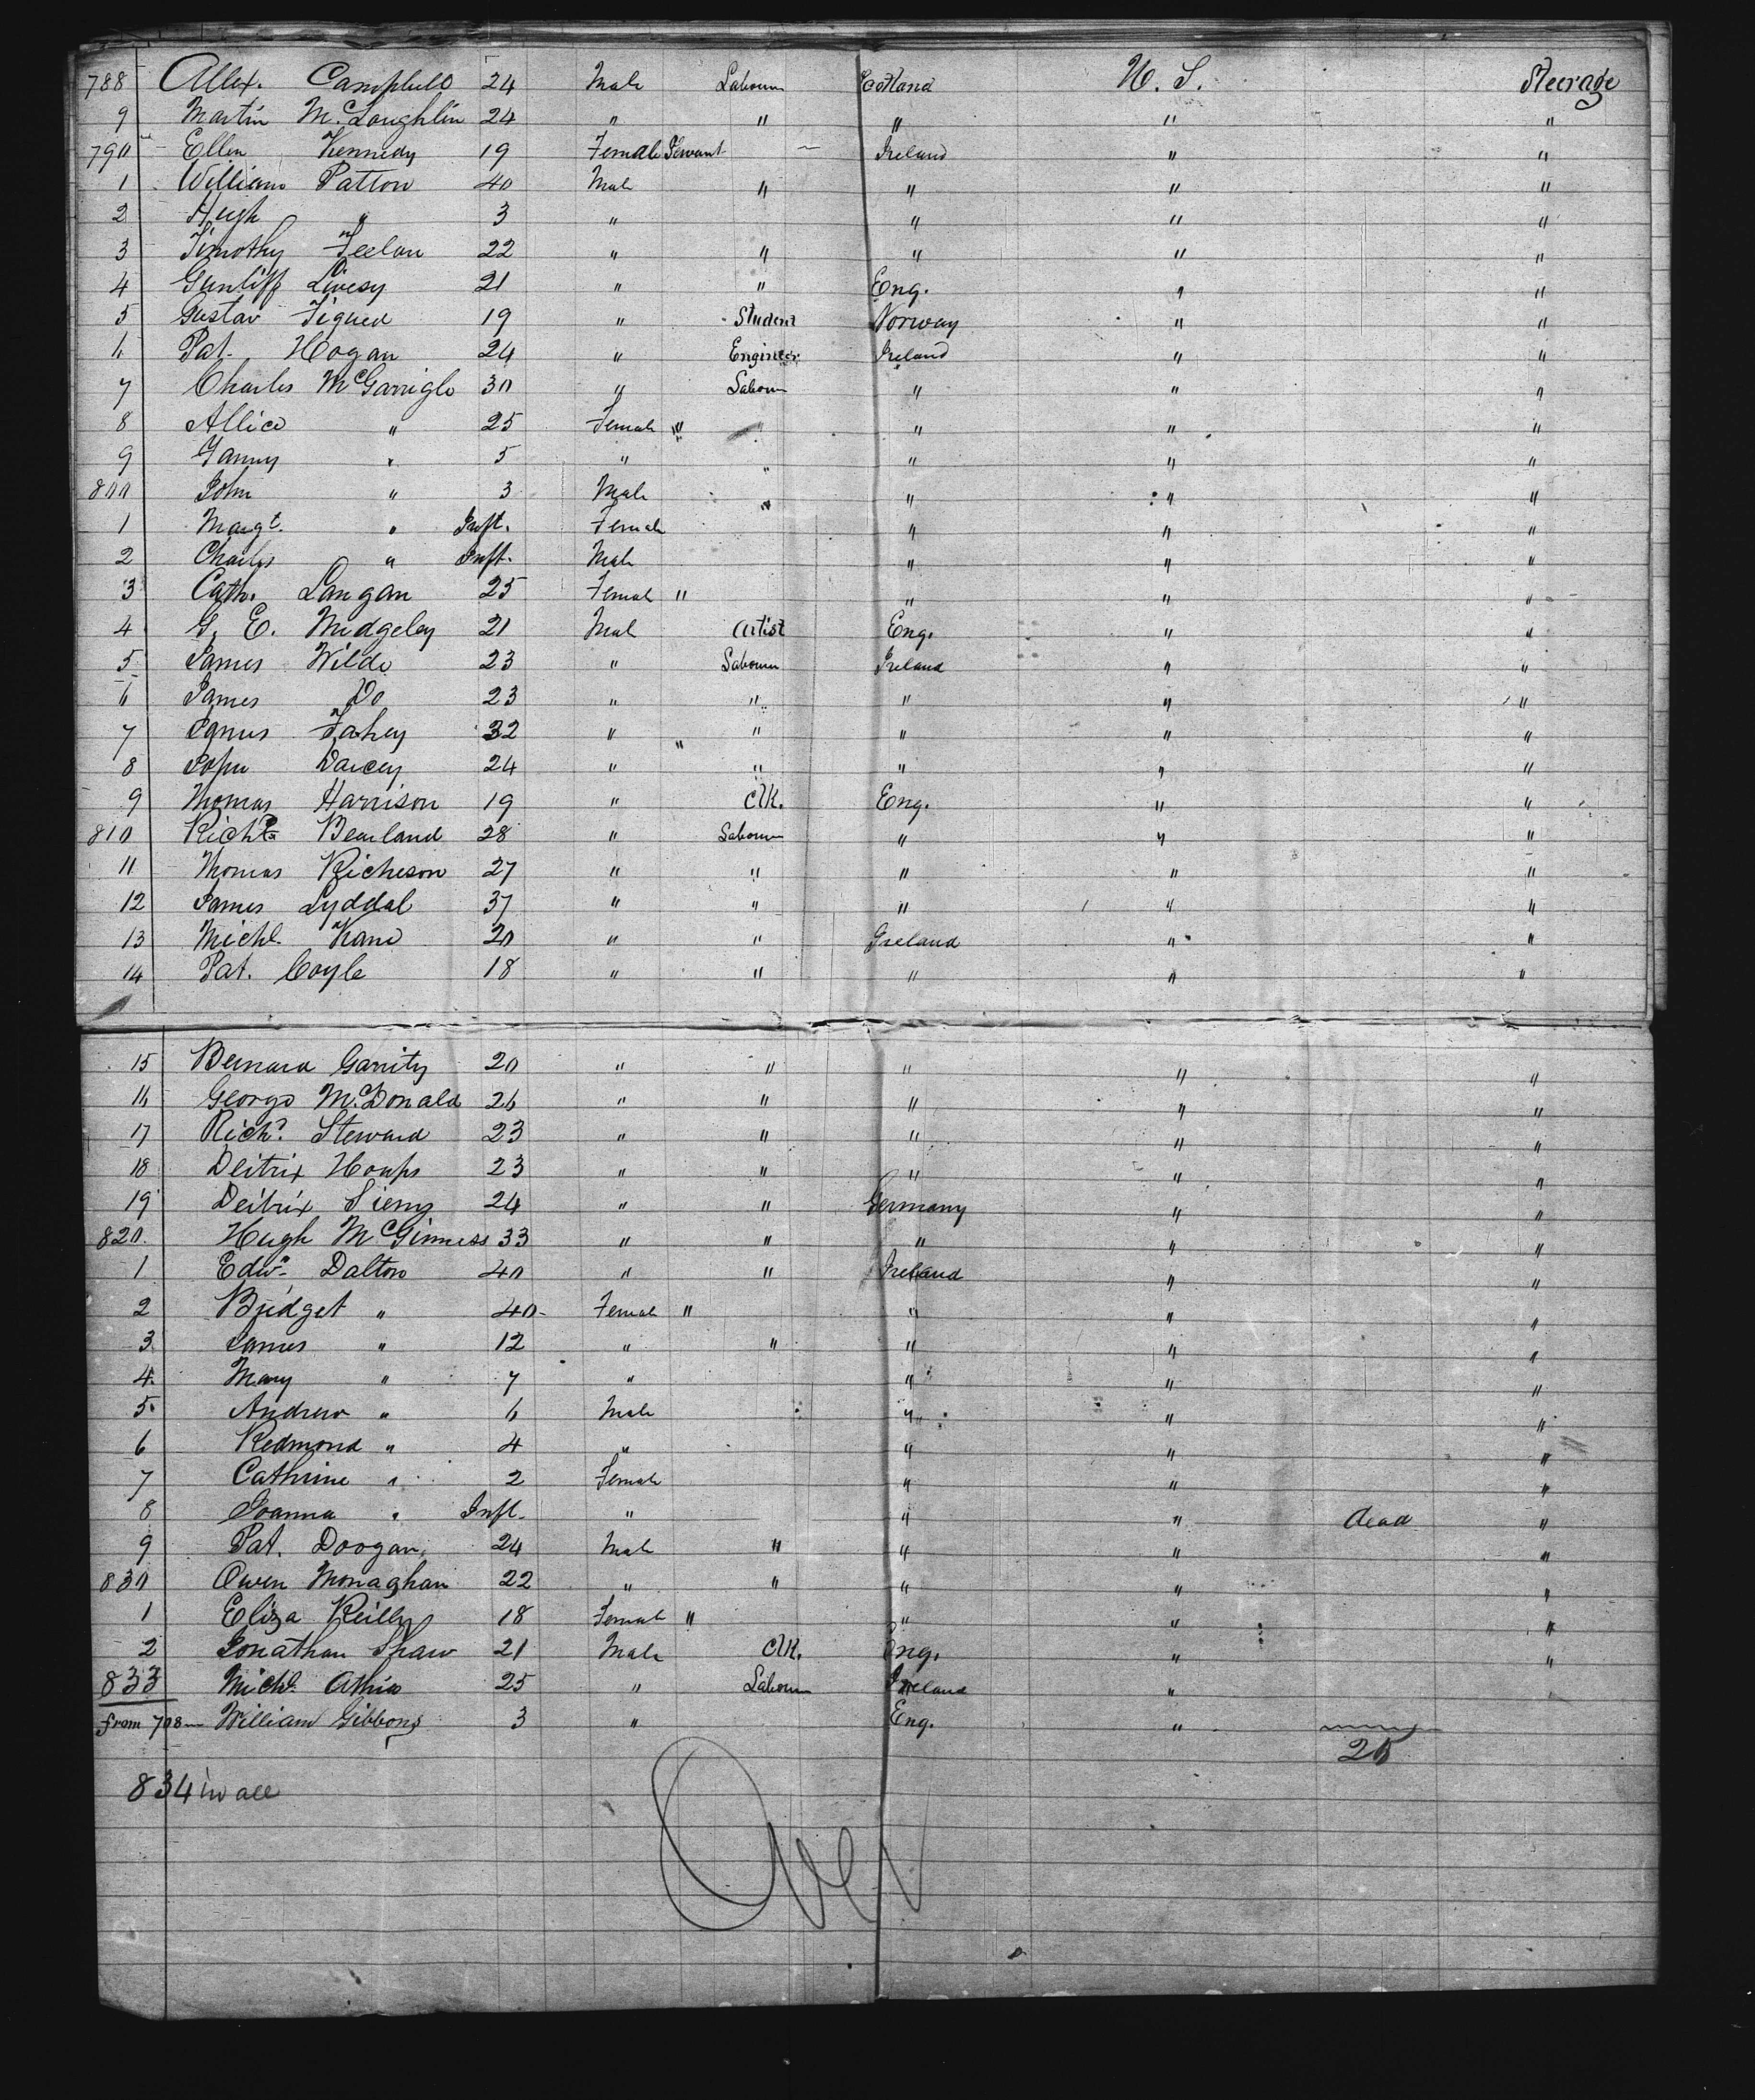 788 Allex. Campbell 24 Male Labourer Scotland U. S. Steerage
9 Martin McLoughlin 24 " " " " "
790 Ellen Kennedy 19 Female Servant Ireland " "
1 William Patton 40 Male " " " "
2 Hugh " 3 " " " "
3 Timothy Feelan 22 " " " " "
4 Gunliff Livesy 21 " " Eng. " "
5 Gustav 19 " Student Norway " "
6 Pat. Hogan 24 " Engineer Ireland " "
7 Charles McGarrigle 30 " Labourer " " "
8 Allice " 25 Female " " " "
9 Fanny " 5 " " " " "
800 John " 3 Male " " " "
1 Margt. " Inft. Female " " "
2 Charles " Inft. Male " " "
3 Cath. Langan 25 Female " " " "
4 G. E. Midgeley 21 Male Artist Eng. " "
5 James Wilde 23 " Labourer Ireland " "
6 James Do 23 " " " " "
7 Fahey 32 " " " " "
8 John Darcey 24 " " " " "
9 Thomas Harrison 19 " Clk. Eng. " "
810 Richd. Bearland 28 " Labourer " " "
11 Thomas Richeson 27 " " " " "
12 James Lyddal 37 " " " " "
13 Michl. Kane 20 " " Ireland " "
14 Pat. Coyle 18 " " " " "
15 Bernard Garrity 20 " " " " "
16 George McDonald 26 " " " " "
17 Richd. Steward 23 " " " " "
18 Deitrix Houps 23 " " " " "
19 Deitrix Siems 24 " " Germany " "
820. Hugh McGinness 33 " " " " "
1 Edwd. Dalton 40 " " Ireland " "
2 Bridget " 40 Female " " " "
3 James " 12 " " " " "
4. Mary " 7 " " " "
5 Andrew " 6 Male " " "
6 Redmond " 4 " " " "
7 Cathrine " 2 Female " " "
8 Joanna " Inft. " " " dead "
9 Pat. Doogan 24 Male " " " "
830 Owen Monaghan 22 " " " " "
1 Eliza Reilly 18 Female " " " "
2 Jonathan Shaw 21 Male Clk. Eng. " "
833 Michl. 25 " Labourer Ireland "
from 708 William Gibbons 3 " Eng. "
834 in all
Over